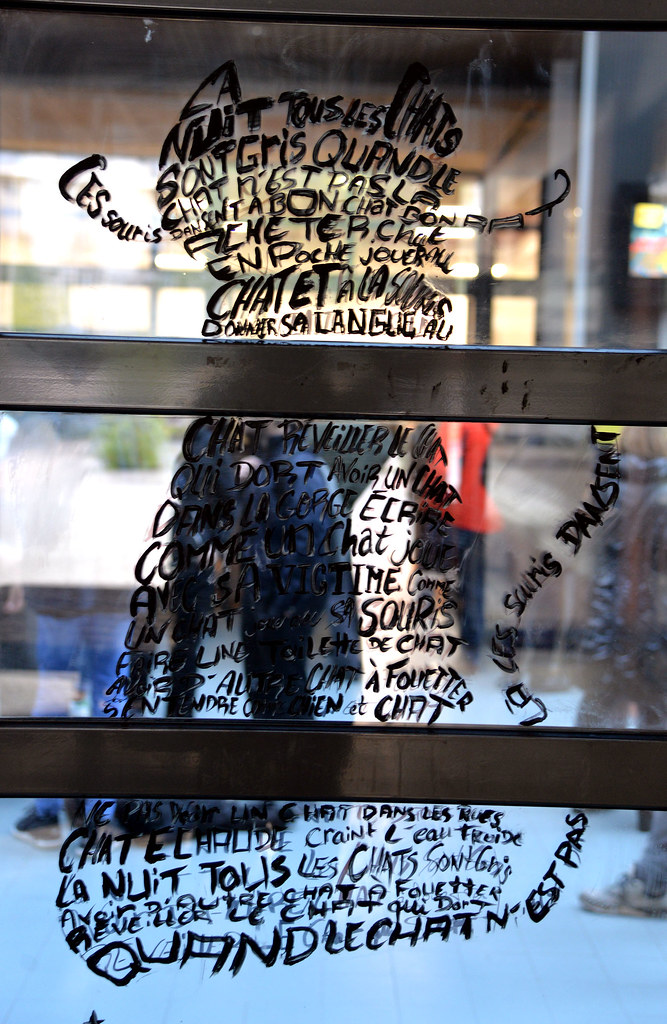 LA
NUIT TOUS LES CHATS
SONT GRIS QUAND LE
CHAT N'EST PAS LA
LES SOURIS DANSENT A BON CHAT BON RAT
ACHETER Chat
EN POCHE JOUER AU
CHAT ET À LA SOURIS
DONNER SA LANGUE AU
CHAT RÉVEILLER LE CHAT
QUI DORT AVOIR UN CHAT
DANS LA GORGE ÉCRIRE
COMME UN Chat joue
AVEC SA VICTIME COMME
UN CHAT SA SOURIS
FAIRE UNE TOILETTE DE CHAT
AVOIR D'AUTRE CHAT À FOUETTER
S'ENTENDRE CHIEN et CHAT
LÀ LES SOURIS DANSENT
NE PAS UN CHAT DANS LES RUES
CHAT ECHAUDE craint L'eau FROIDE
LA NUIT TOUS LES CHATS SONT GRIS
AVOIR D'AUTRE CHAT A FOUETTER
REVEILLER LE CHAT qui DORT
QUAND LE CHAT N'EST PAS